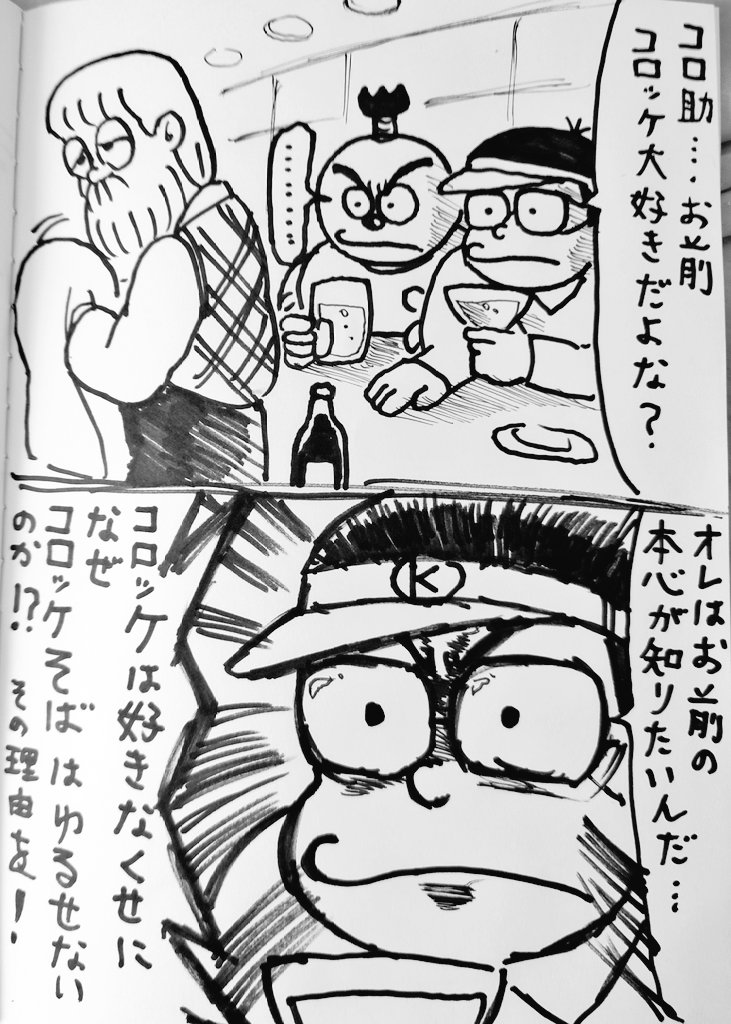 コロ助…お前
コロッケ大好きだよな?
……
オレはお前の
本心が知りたいんだ…
K
コロッケは好きなくせに
なぜ
コロッケそばはゆるせない
のか!?その理由を!